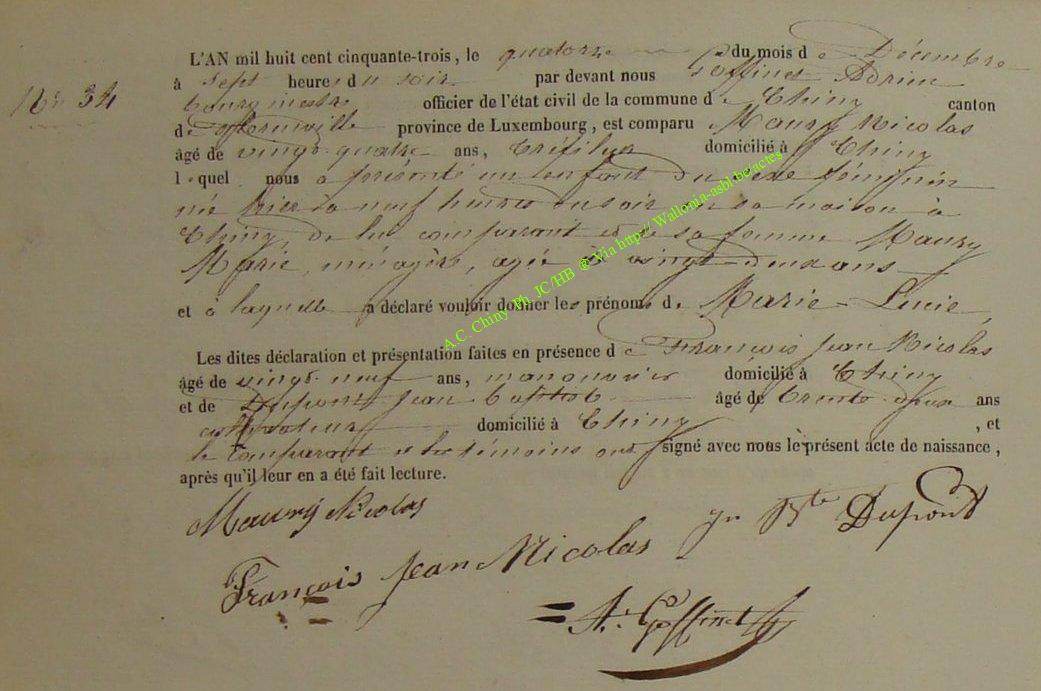 N° 34
L'AN mil huit cent cinquante-trois, le quatorze du mois de Décembre
à sept heures du soir par devant nous Goffinet Adrien
bourgmestre officier de l'état civil de la commune de Chiny canton
de Florenville province de Luxembourg, est comparu Maury Nicolas
âgé de vingt-quatre ans, tréfileur domicilié à Chiny
lequel nous a présenté un enfant du sexe féminin
née hier à neuf heures du soir en sa maison à
Chiny, de lui comparant et de sa femme Maury
Marie, ménagère, agée de vingt-deux ans
et à laquelle a déclaré vouloir donner les prénoms de Marie-Lucie,
Les dites déclaration et présentation faites en présence de François Jean Nicolas
âgé de vingt-neuf ans, manouvrier domicilié à Chiny
et de Dupont Jean Baptiste âgé de trente-deux ans
cultivateur domicilié à Chiny, et
le comparant et les témoins ont signé avec nous le présent acte de naissance,
après qu'il leur en a été fait lecture.
Maury Nicolas
Jn Bte Dupont
François Jean Nicolas
A. Goffinet
A.C. Chiny Ph JC/HB @ Via http://Wallonia-asbl-be/actes